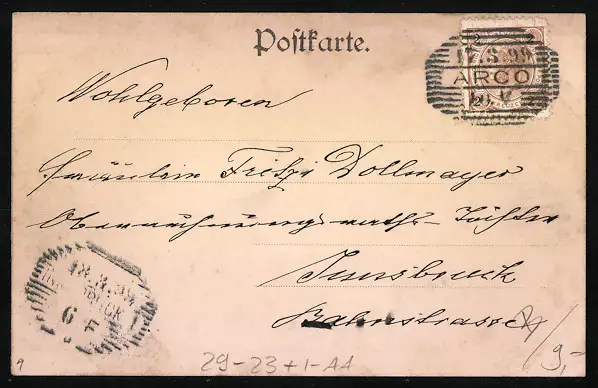 Postkarte.
2 2
17.3.99
ARCO
2
Wohlgeboren
Fräulein Fritzi Dollmayer
Oberrechnungsraths-Tochter
Innsbruck
Bahnstrasse
18.3.99
INNSBRUCK
6 F
9,-
29-23+1-AA
9